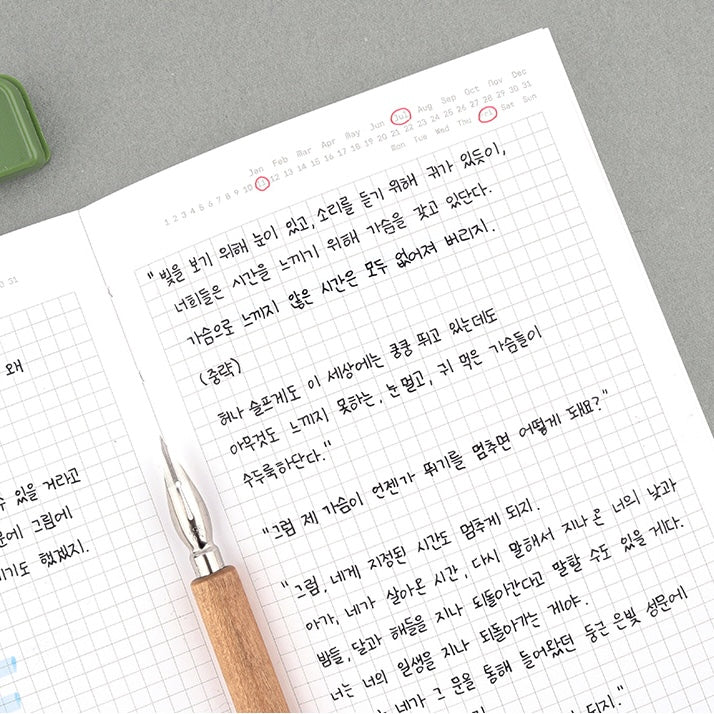 31
왜
수 있을 거라고
문에 그림에
기도 했겠지.
Jan Feb Mar Apr May Jun Jul Aug Sep Oct Nov Dec
1 2 3 4 5 6 7 8 9 10 11 12 13 14 15 16 17 18 19 20 21 22 23 24 25 26 27 28 29 30 31
Mon Tue Wed Thu Fri Sat Sun
"빛을 보기 위해 눈이 있고, 소리를 듣기 위해 귀가 있듯이,
너희들은 시간을 느끼기 위해 가슴을 갖고 있단다.
가슴으로 느끼지 않은 시간은 모두 없어져 버리지.
(중략)
허나 슬프게도 이 세상에는 쿵쿵 뛰고 있는데도
아무것도 느끼지 못하는, 눈 멀고, 귀 먹은 가슴들이
수두룩하단다."
"그럼 제 가슴이 언젠가 뛰기를 멈추면 어떻게 돼요?"
"그럼, 네게 지정된 시간도 멈추게 되지.
아가, 네가 살아온 시간, 다시 말해서 지나 온 너의 낮과
밤들, 달과 해들을 지나 되돌아간다고 말할 수도 있을 게다.
너는 너의 일생을 지나 되돌아가는 게야.
네가 그 문을 통해 들어왔던 둥근 은빛 성문에
되지."